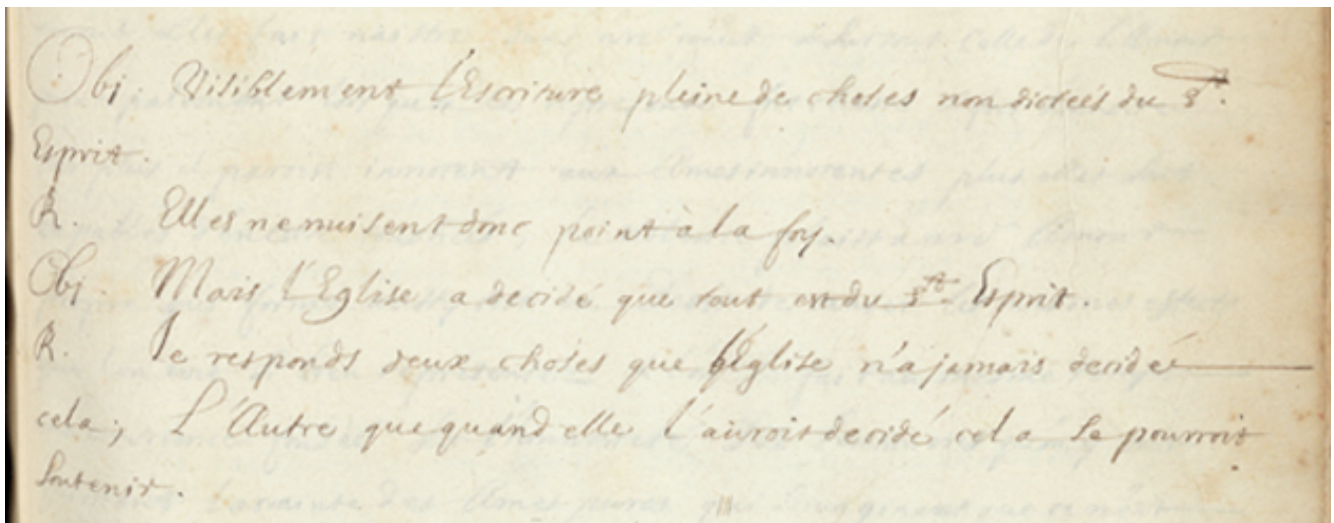 Obj. Visiblement l'Escriture pleine de choses non dictées du St.
Esprit.
R. Elles ne nuisent donc point à la foy.
Obj. Mais l'Eglise a decidé que tout est du St. Esprit.
R. Je responds deux choses que l'Eglise n'a jamais decidé
cela; L'Autre que quand elle l'auroit decidé cela se pourroit
soutenir.